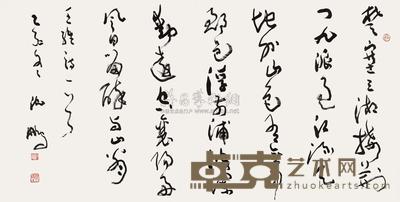 楚塞三湘接荆
门九派通江流天
地外山色有无中
郡邑浮前浦波澜
动远空襄阳好
风日留醉与山翁
王维诗一首
沈鹏
卓克艺术网
www.zhuokearts.com